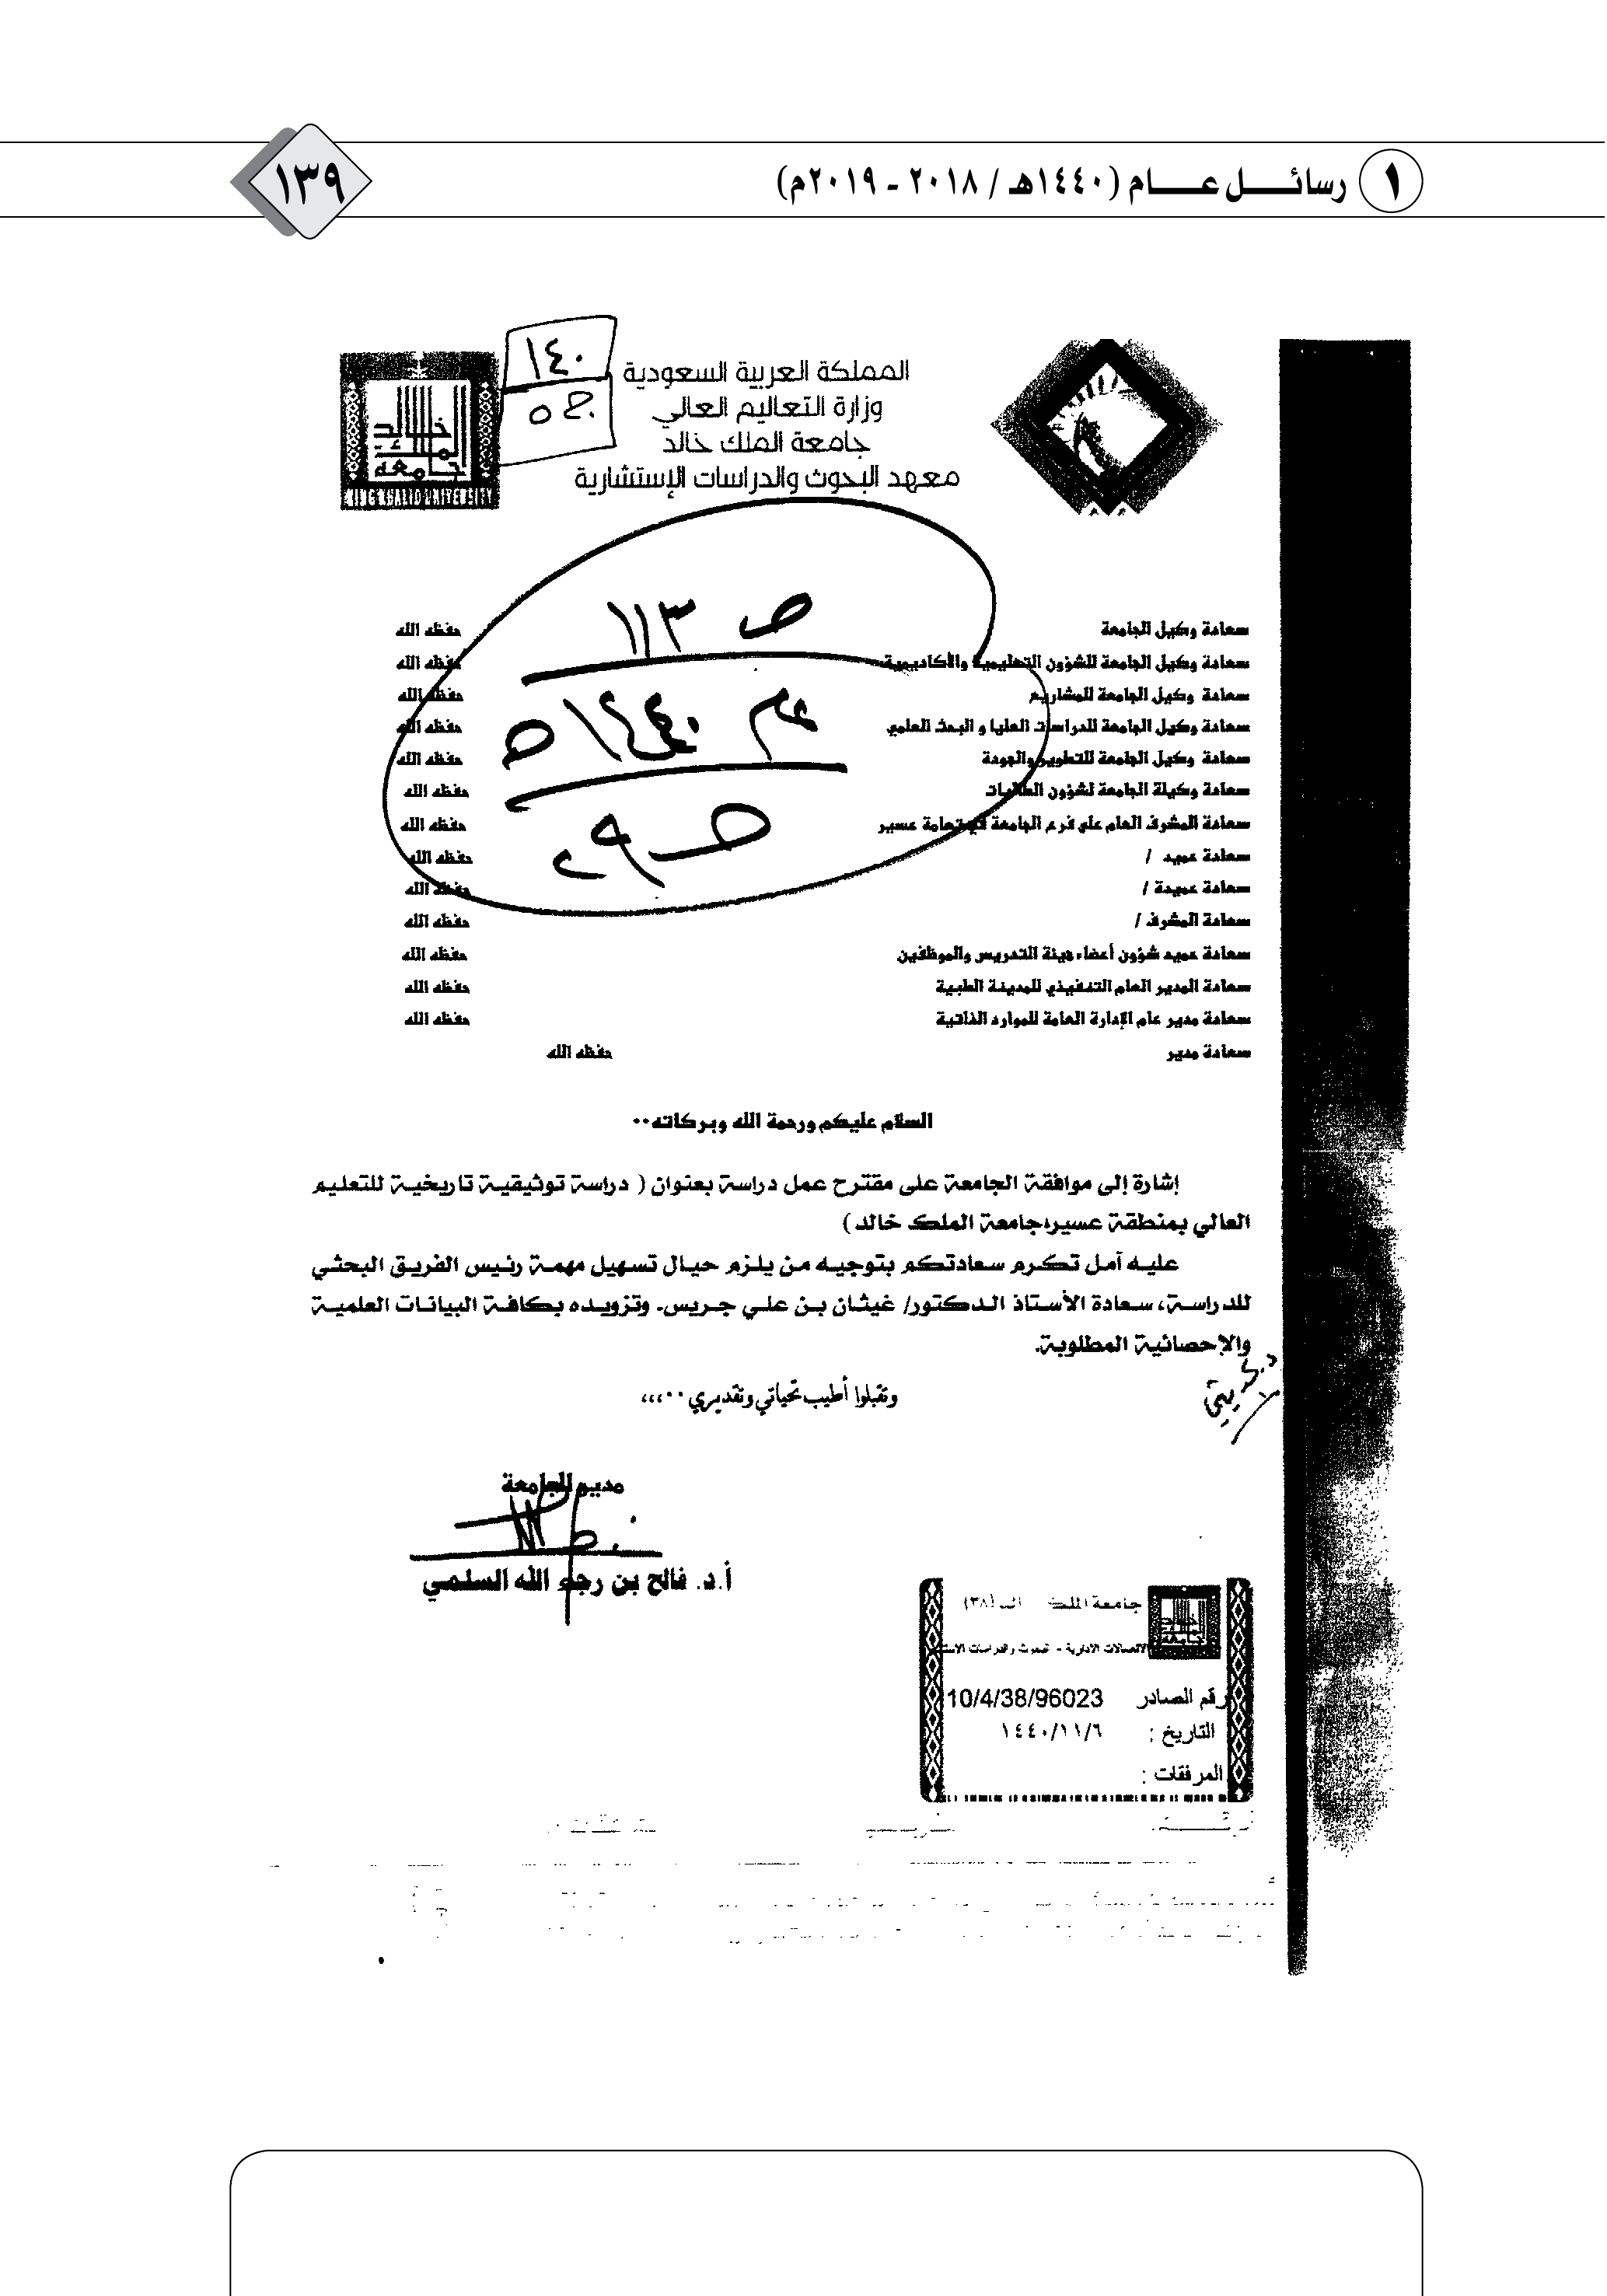 ١ رسائل عام (١٤٤٠هـ / ٢٠١٨ - ٢٠١٩م)
١٣٩
المملكة العربية السعودية
وزارة التعاليم العالي
جامعة الملك خالد
معهد البحوث والدراسات الإستشارية
١٤٠
ص ١١٣
عام ١٤٤٠هـ
سعادة وكيل الجامعة حفظه الله
سعادة وكيل الجامعة للشؤون التعليمية والأكاديمية حفظه الله
سعادة وكيل الجامعة للمشاريع حفظه الله
سعادة وكيل الجامعة للدراسات العليا و البحث العلمي حفظه الله
سعادة وكيل الجامعة للتطوير والجودة حفظه الله
سعادة وكيلة الجامعة لشؤون الطالبات حفظه الله
سعادة المشرف العام على فرع الجامعة في تهامة عسير حفظه الله
سعادة عميد / حفظه الله
سعادة عميدة / حفظه الله
سعادة المشرف / حفظه الله
سعادة عميد شؤون أعضاء هيئة التدريس والموظفين حفظه الله
سعادة المدير العام التنفيذي للمدينة الطبية حفظه الله
سعادة مدير عام الإدارة العامة للموارد الذاتية حفظه الله
سعادة مدير حفظه الله
السلام عليكم ورحمة الله وبركاته..
إشارة إلى موافقة الجامعة على مقترح عمل دراسة بعنوان ( دراسة توثيقية تاريخية للتعليم
العالي بمنطقة عسير،جامعة الملك خالد )
عليه آمل تكرم سعادتكم بتوجيه من يلزم حيال تسهيل مهمة رئيس الفريق البحثي
للدراسة، سعادة الأستاذ الدكتور/ غيثان بن علي جريس. وتزويده بكافة البيانات العلمية
والإحصائية المطلوبة.
وتقبلوا أطيب تحياتي وتقديري ..،،،
مدير الجامعة
أ.د. فالح بن رجاء الله السلمي
جامعة الملك (٣٨)
الاتصالات الادارية - البحوث والدراسات
رقم الصادر 10/4/38/96023
التاريخ : ١٤٤٠/١١/٦
المرفقات :